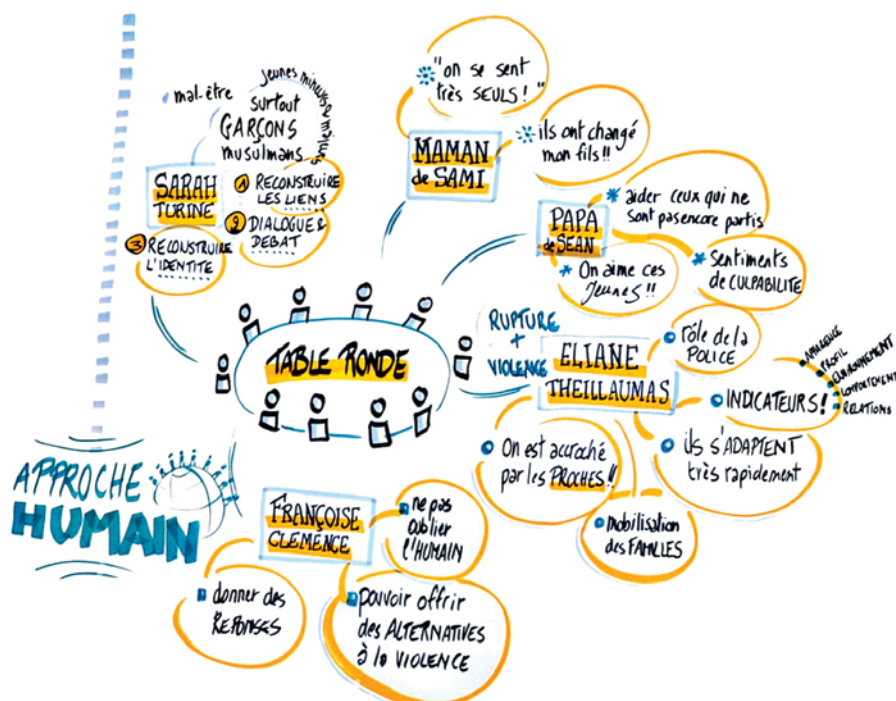 mal-être
jeunes mineurs & majeurs
surtout
GARÇONS
musulmans
SARAH
TURINE
① RECONSTRUIRE
LES LIENS
② DIALOGUE &
DEBAT
③ RECONSTRUIRE
L'IDENTITE
"on se sent
très SEULS!"
MAMAN
de SAMI
ils ont changé
mon fils!!
PAPA
de SEAN
aider ceux qui ne
sont pas encore partis
On aime ces
Jeunes!!
Sentiments
de CULPABILITE
TABLE RONDE
RUPTURE
+
VIOLENCE
ELIANE
THEILLAUMAS
rôle de la
POLICE
INDICATEURS!
APPARENCE
PROFIL
ENVIRONNEMENT
COMPORTEMENT
RELATIONS
On est accroché
par les PROCHES!!
ils S'ADAPTENT
très rapidement
mobilisation
des FAMILLES
APPROCHE
HUMAIN
FRANÇOISE
CLEMENCE
ne pas
oublier
l'HUMAIN
donner des
REPONSES
pouvoir offrir
des ALTERNATIVES
à la VIOLENCE